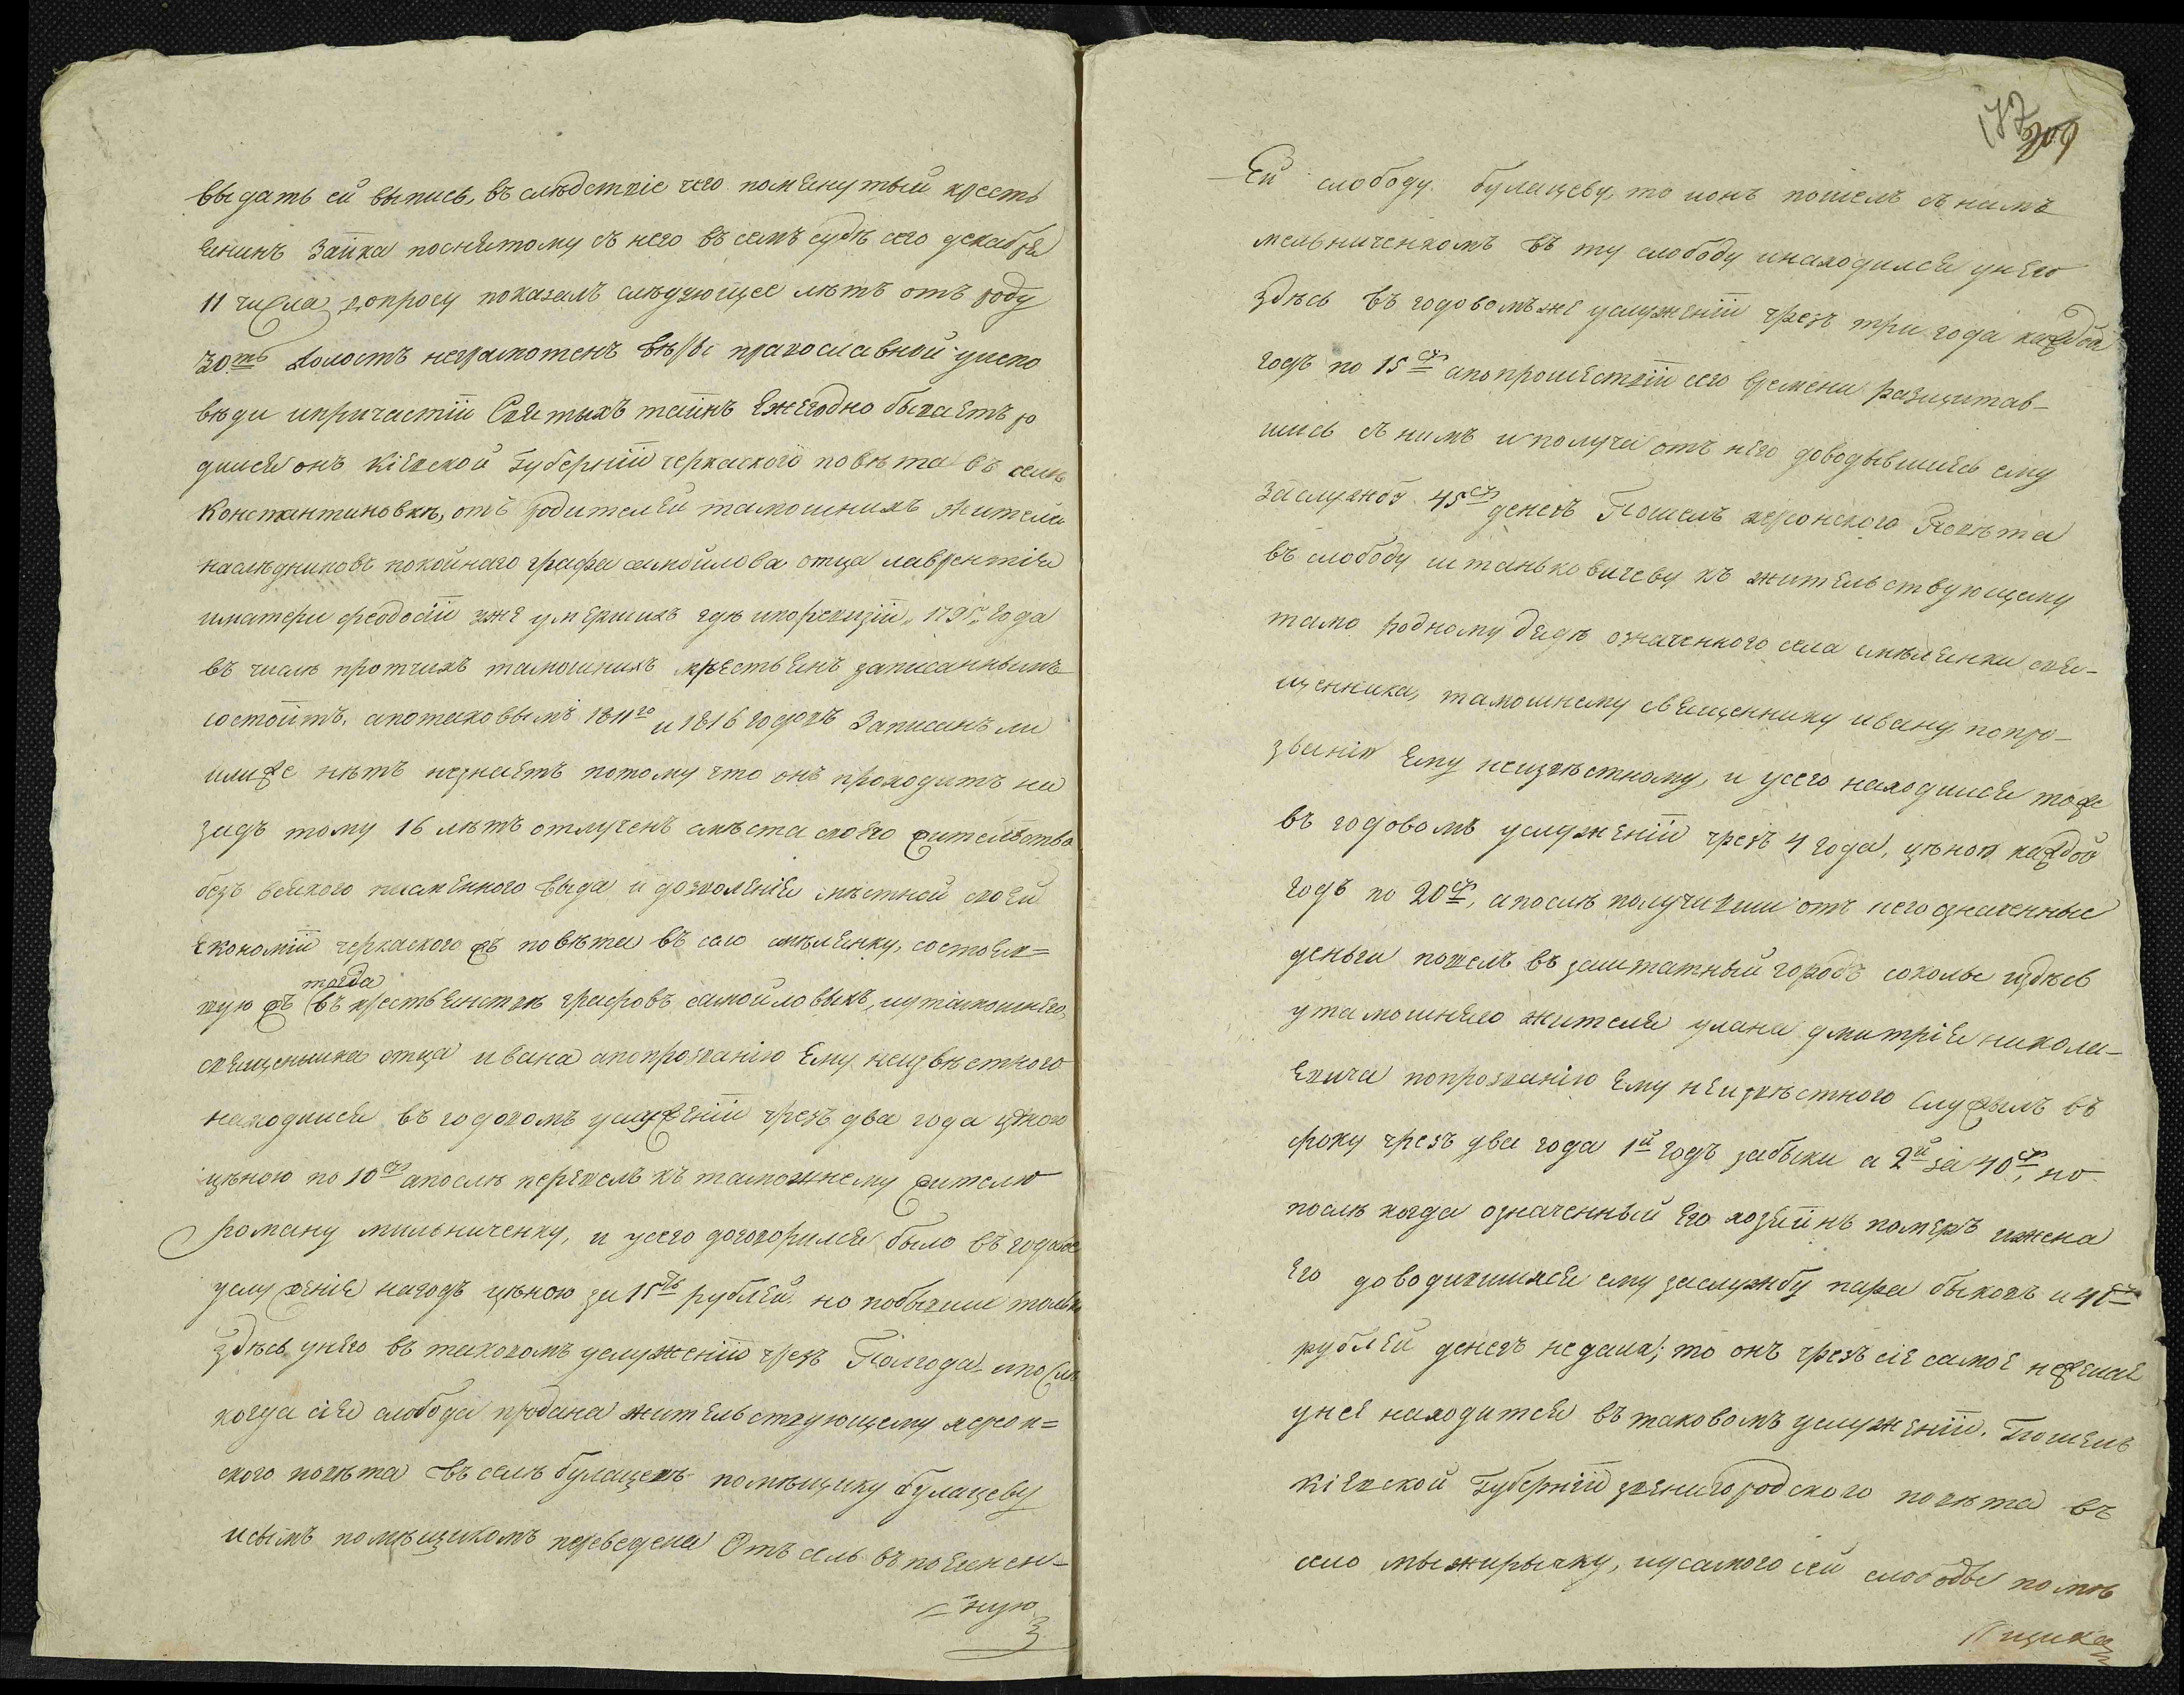 выдать ей выпись, въ слѣдствіе чего помянутый кресть
янинъ Зайка поснятому съ него въ семъ судѣ сего декабря
11 числа допросу показалъ слѣдующее лѣтъ отъ роду
30ть холостъ неграмотенъ вѣры православной уиспо
вѣди ипричастіи Святыхъ таинъ Ежегодно бываетъ ро
дился онъ Кіевской Губерніи черкаского повѣта въ селѣ
Константиновкѣ, отъ родителей тамошнихъ жителей
наслѣдниковъ покойнаго графа самойлова отца лаврентія
иматери феодосіи уже умершихъ гдѣ ипоревизіи, 1795, года
въ числѣ протчихъ тамошнихъ крестьянъ записаннымъ
состоитъ, апотаковымъ 1811го и 1816 годовъ Записанъ ли
илиже нѣтъ незнаетъ потому что онъ проходитъ на
задъ тому 16 лѣтъ отлученъ смѣста своего жительства
безъ всякого писменного вида и дозволенія мѣстной своей
Економіи черкаского жъ повѣта въ село смѣлянку, состояв=
тогда
шую жъ въ крестьянствѣ графовъ самойловыхъ, иутамошнего
священника отца ивана апопрозванію Ему неизвѣстного
находился въ годовомъ услуженіи чрезъ два года
цѣною по 10ср апослѣ перешелъ къ таможнему жителю
роману мильниченку, и усего договорился было въ годовое
услуженіе нагодъ цѣною за 15ть рублей. но побывши только
здѣсь унего въ таковомъ услуженіи чрезъ Полгода, ипослѣ
когда сія слобода продана жительствующему херсон=
ского повѣта въ селѣ булацевѣ помѣщику булацеву
исымъ помѣщикомъ переведена Отъ сель въ
ную
172
309
Ей слободу булацеву, то ионъ пошелъ съ нимъ
мельниченкомъ въ ту слободу инаходился унего
здѣсь въ годовомъ же услуженіи чрезъ три года каждой
годъ по 15ср апопрошествіи сего времени разщитав-
шись съ нимъ иполуча отъ него доводывшіясь ему
заслужбу 45ср денегъ Пошелъ херсонского Повѣта
въ слободу истаньковичеву къ жительствующему
тамо родному дядѣ означенного села смѣлянки свя-
щенника, тамошнему священнику ивану попро-
званію Ему неизвѣстному, и усего находился тоже
въ годовомъ услуженіи чрезъ 4 года, цѣною каждой
годъ по 20ср, апослѣ получивши отъ него означенные
деньги пошелъ въ заштатный городъ соколы издѣсь
утамошняго жителя улана дмитрія никола-
евича попрозванію Ему неизвѣстного Служилъ въ
року чрезъ два года 1й годъ забыки а 2й за 40ср, но
послѣ когда означенный Его хозяинъ померъ ижена
Его доводившихся ему заслужбу пара быковъ и 40ср
рублей денегъ недала; то онъ чрезъ сіе самое нежелая
унея находится въ таковомъ услуженіи. Пошелъ
Кіевской Губерніи звенигородского повѣта въ
село мыжирычку, иусамого сей слободы помѣ
щика